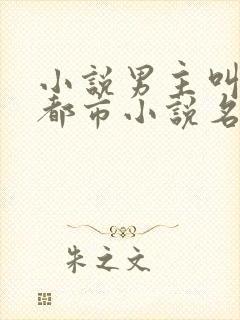 小說男主叫
都市小說名
朱之文